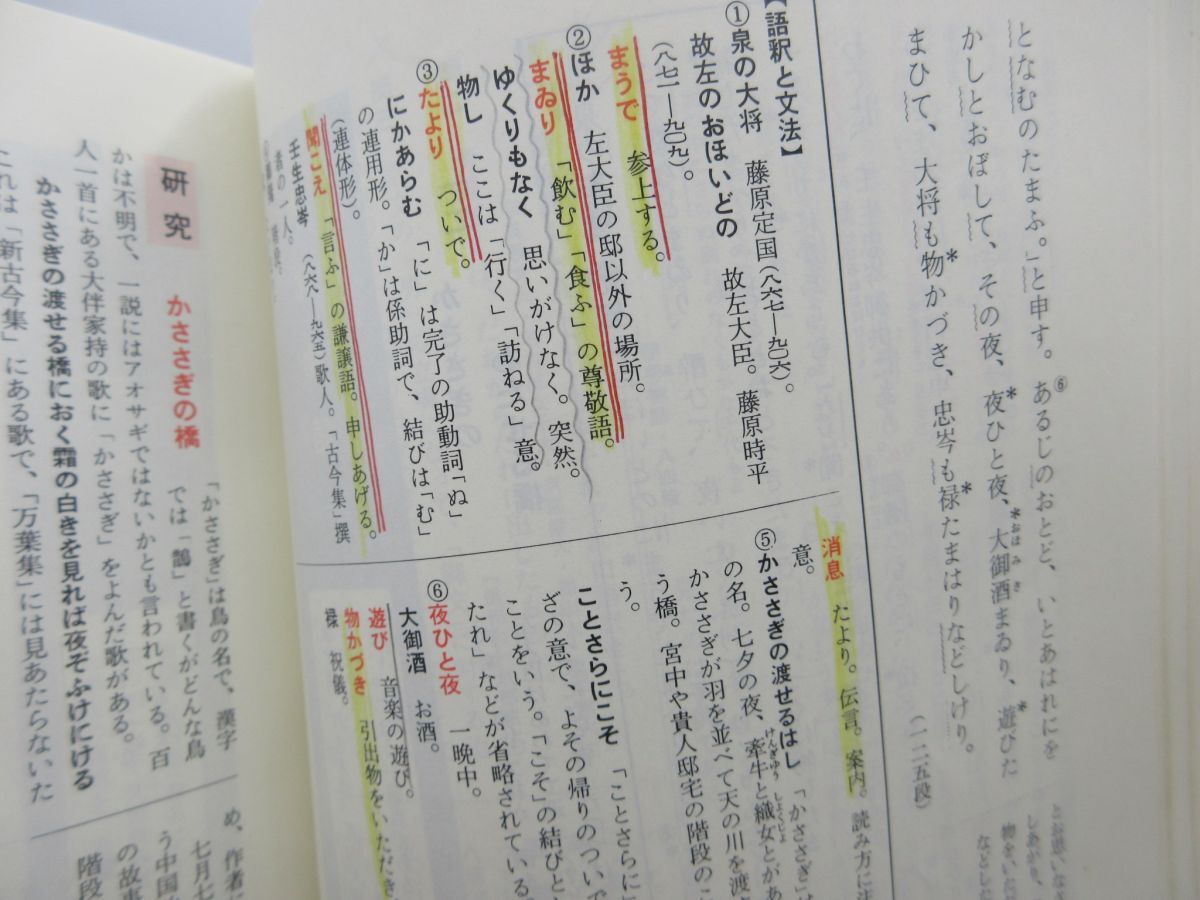 となむのたまふ。」と申す。⑥あるじのおとど、いとあはれにを
かしとおぼして、その夜、夜*ひと夜、大御酒*おほみきまゐり、遊び*た
まひて、大将も物*かづき、忠岑も禄*たまはりなどしけり。
(一二五段)
【語釈と文法】
①泉の大将 藤原定国(八六七―九〇六)。
故左のおほいどの 故左大臣。藤原時平
(八七一―九〇九)。
まうで 参上する。
②ほか 左大臣の邸以外の場所。
まゐり 「飲む」「食ふ」の尊敬語。
ゆくりもなく 思いがけなく。突然。
物し ここは「行く」「訪ねる」意。
③たより ついで。
にかあらむ 「に」は完了の助動詞「ぬ」
の連用形。「か」は係助詞で、結びは「む」
(連体形)。
聞こえ 「言ふ」の謙譲語。申しあげる。
壬生忠岑 (八六八―九六五)歌人。「古今集」撰
者の一人。
消息 たより。伝言。案内。読み方に注
意。
⑤かささぎの渡せるはし 「かささぎ」は
の名。七夕の夜、牽牛けんぎゆうと織女しよくじよとがあ
かささぎが羽を並べて天の川を渡
う橋。宮中や貴人邸宅の階段のこ
う。
ことさらにこそ 「ことさらに」
ざの意で、よその帰りのついで
ことをいう。「こそ」の結びと
たれ」などが省略されている。
⑥夜ひと夜 一晩中。
大御酒 お酒。
遊び 音楽の遊び。
物かづき 引出物をいただき
禄 祝儀。
とお思いなさ
しあがり、
物をいただ
などした
研究 かささぎの橋
「かささぎ」は鳥の名で、漢字
では「鵲」と書くがどんな鳥
かは不明で、一説にはアオサギではないかとも言われている。百
人一首にある大伴家持の歌に「かささぎ」をよんだ歌がある。
かささぎの渡せる橋におく霜の白きを見れば夜ぞふけにける
これは「新古今集」にある歌で、「万葉集」には見あたらないた
め、作者に
七月七
う中国
の故事
階段